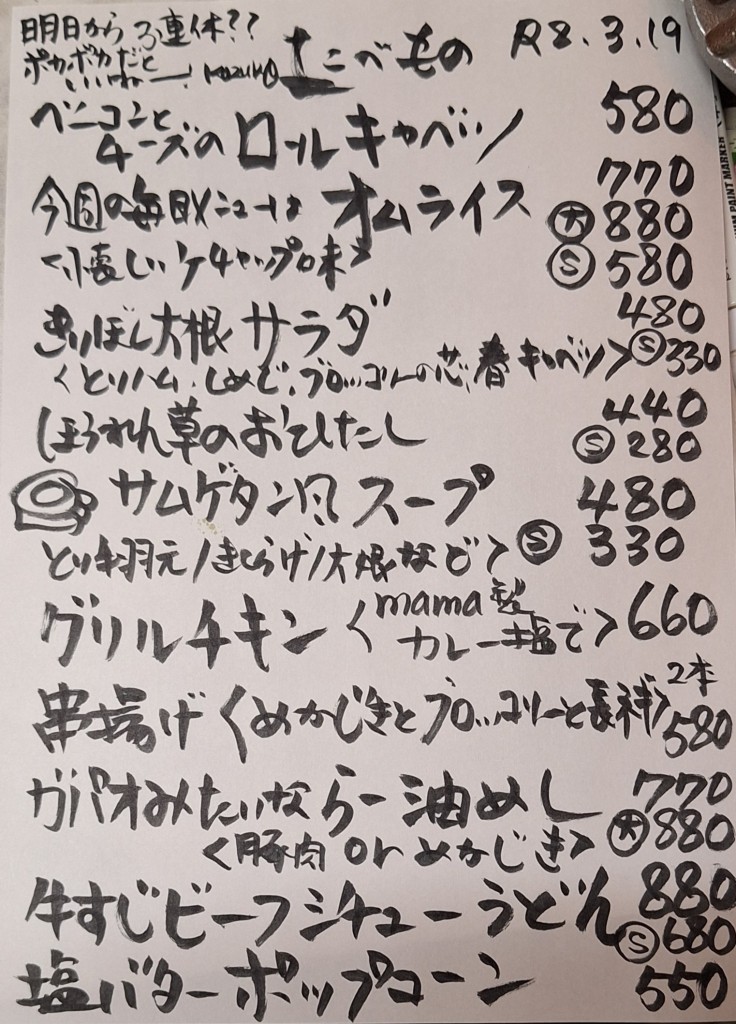 明日から3連休??
ポカポカだと
いいねー! KAZUKO
たこべもの R8.3.19
ベーコンと
チーズのロールキャベツ 580
今週の毎日メニューは オムライス 770
<懐しいケチャップ味> 大 880
S 580
きりぼし大根サラダ 480
<とりハム、しめじ、ブロッコリーの芯、春キャベツ> S 330
ほうれん草のおひたし 440
S 280
サムゲタン風スープ 480
とり手羽元/きくらげ/大根など> S 330
グリルチキン <mama製
カレー塩で> 660
串揚げ <めかじきとブロッコリーと長ネギ> 2本
580
ガパオみたいならー油めし 770
<豚肉 or めかじき> 大 880
牛すじビーフシチューうどん 880
S 680
塩バターポップコーン 550
UM PAINT MARKER